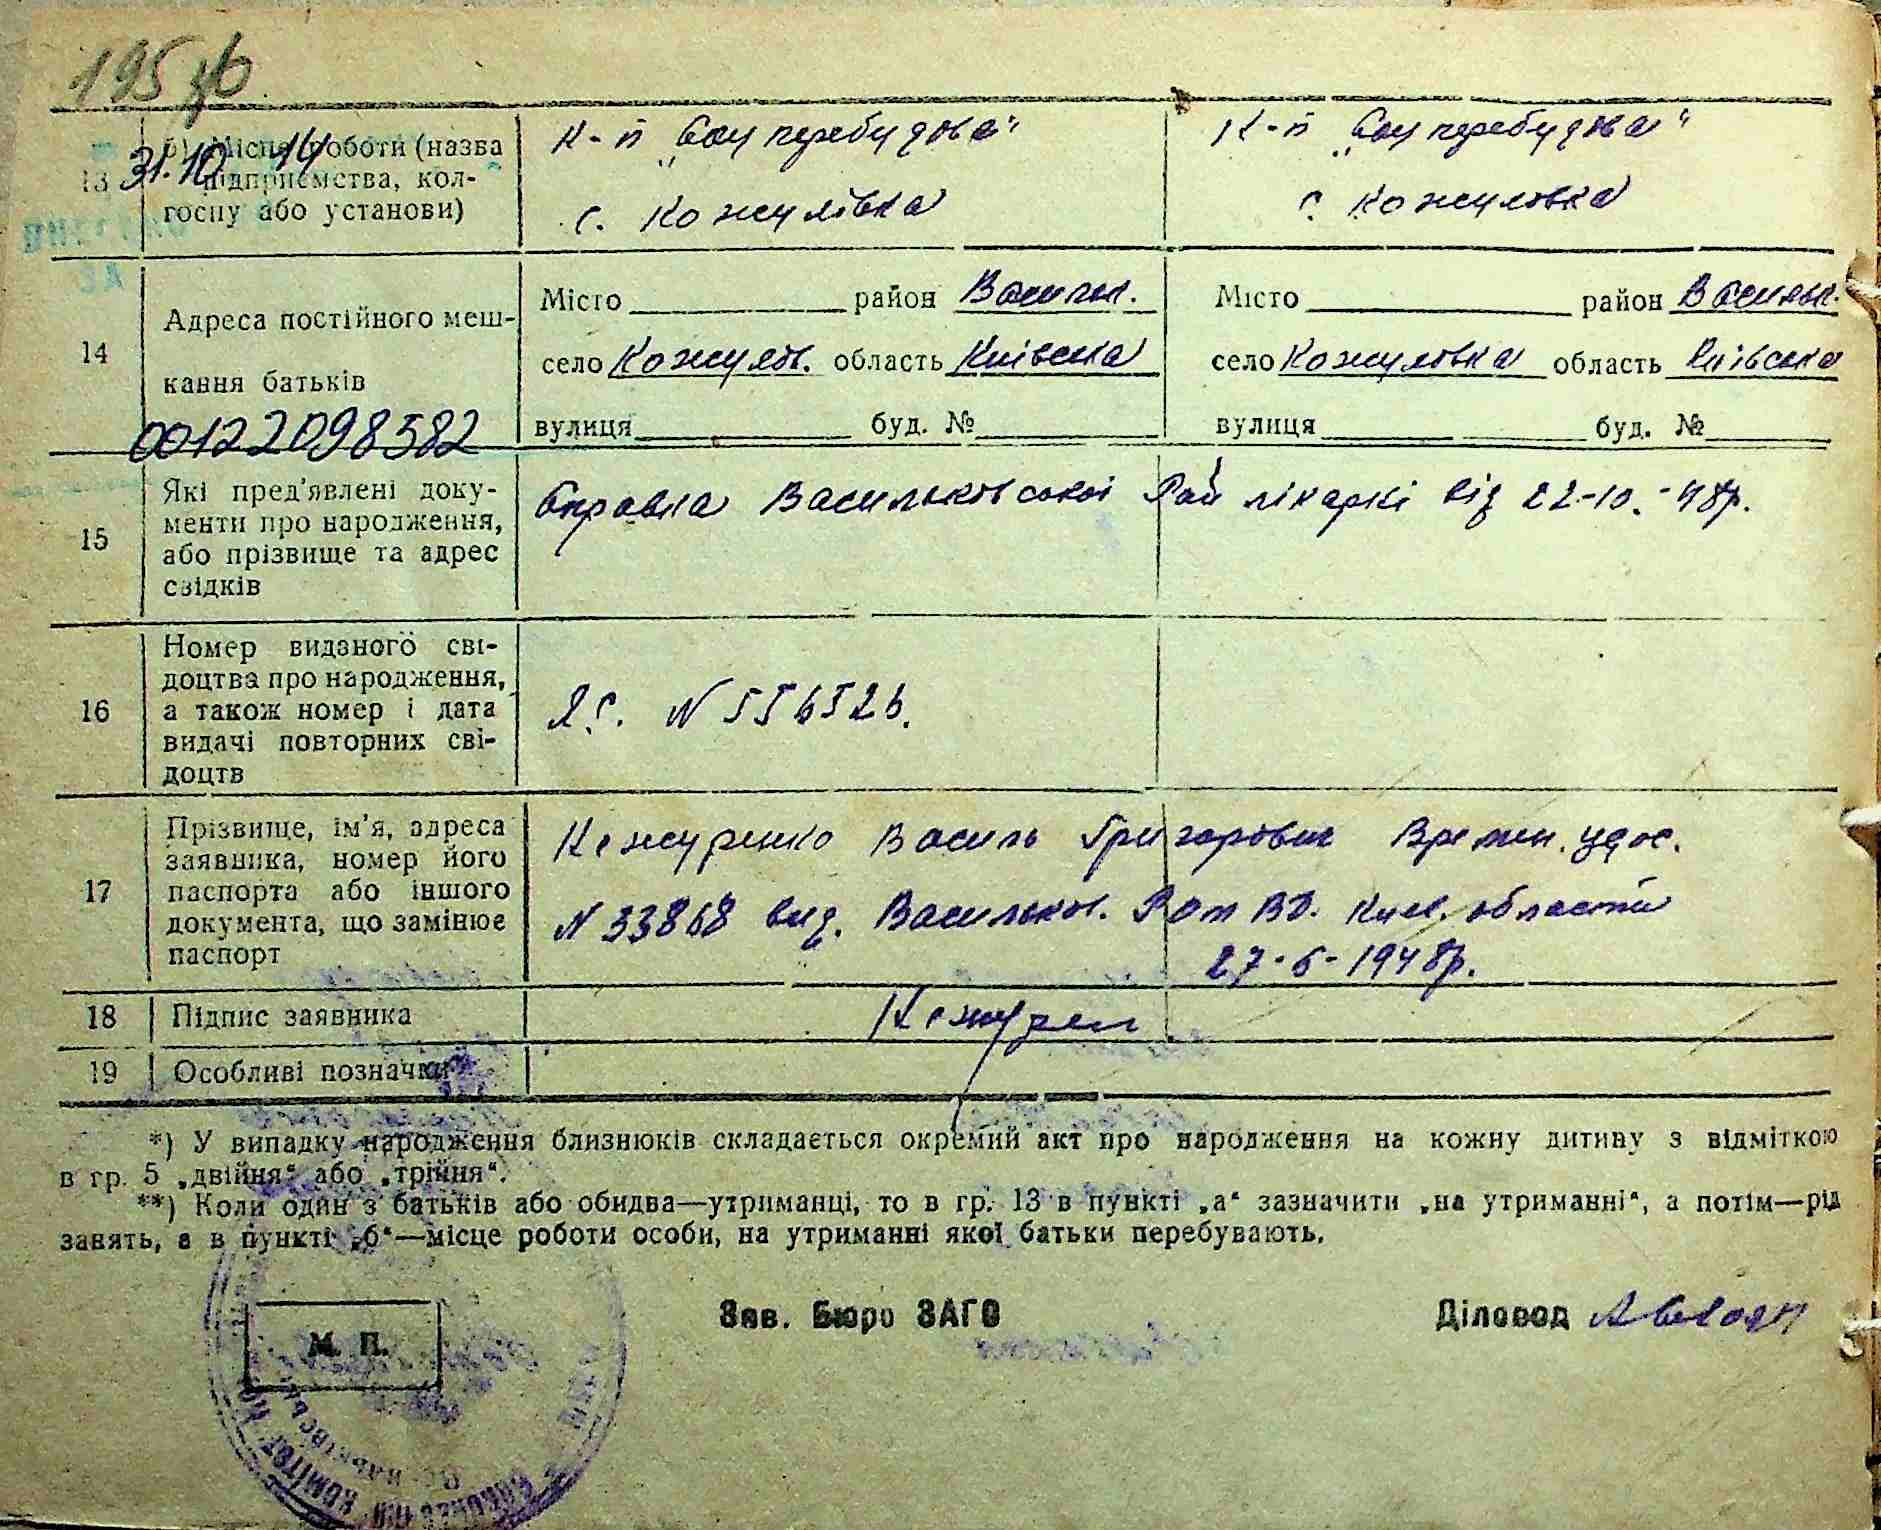 195 зб
31.10 14
13 б) Місце роботи (назва підприємства, колгоспу або установи)
К-п „Соц перебудова" К-п „Соц перебудова"
с. Кожулівка с. Кожуловка
14 Адреса постійного мешкання батьків
Місто район Васильк. Місто район Васильк.
село Кожулов. область Київська село Кожуловка область Київська
вулиця буд. № вулиця буд. №
00122098582
15 Які пред'явлені документи про народження, або прізвище та адрес свідків
Справка Васильковської Рай лікаркі від 22-10.-48р.
16 Номер виданого свідоцтва про народження, а також номер і дата видачі повторних свідоцтв
ЯС. N 556526.
17 Прізвище, ім'я, адреса заявника, номер його паспорта або іншого документа, що замінює паспорт
Кежуренко Василь Григорович Времен. удос.
N 33868 вид. Васильков. Рот ВД. Киев. области
27-6-1948р.
18 Підпис заявника
19 Особливі позначки
*) У випадку народження близнюків складається окремий акт про народження на кожну дитину з відміткою
в гр. 5 „двійня" або „трійня".
**) Коли один з батьків або обидва—утриманці, то в гр. 13 в пункті „а" зазначити „на утриманні", а потім—рід
занять, а в пункті „б"—місце роботи особи, на утриманні якої батьки перебувають.
Зав. Бюро ЗАГС Діловод
М. П.